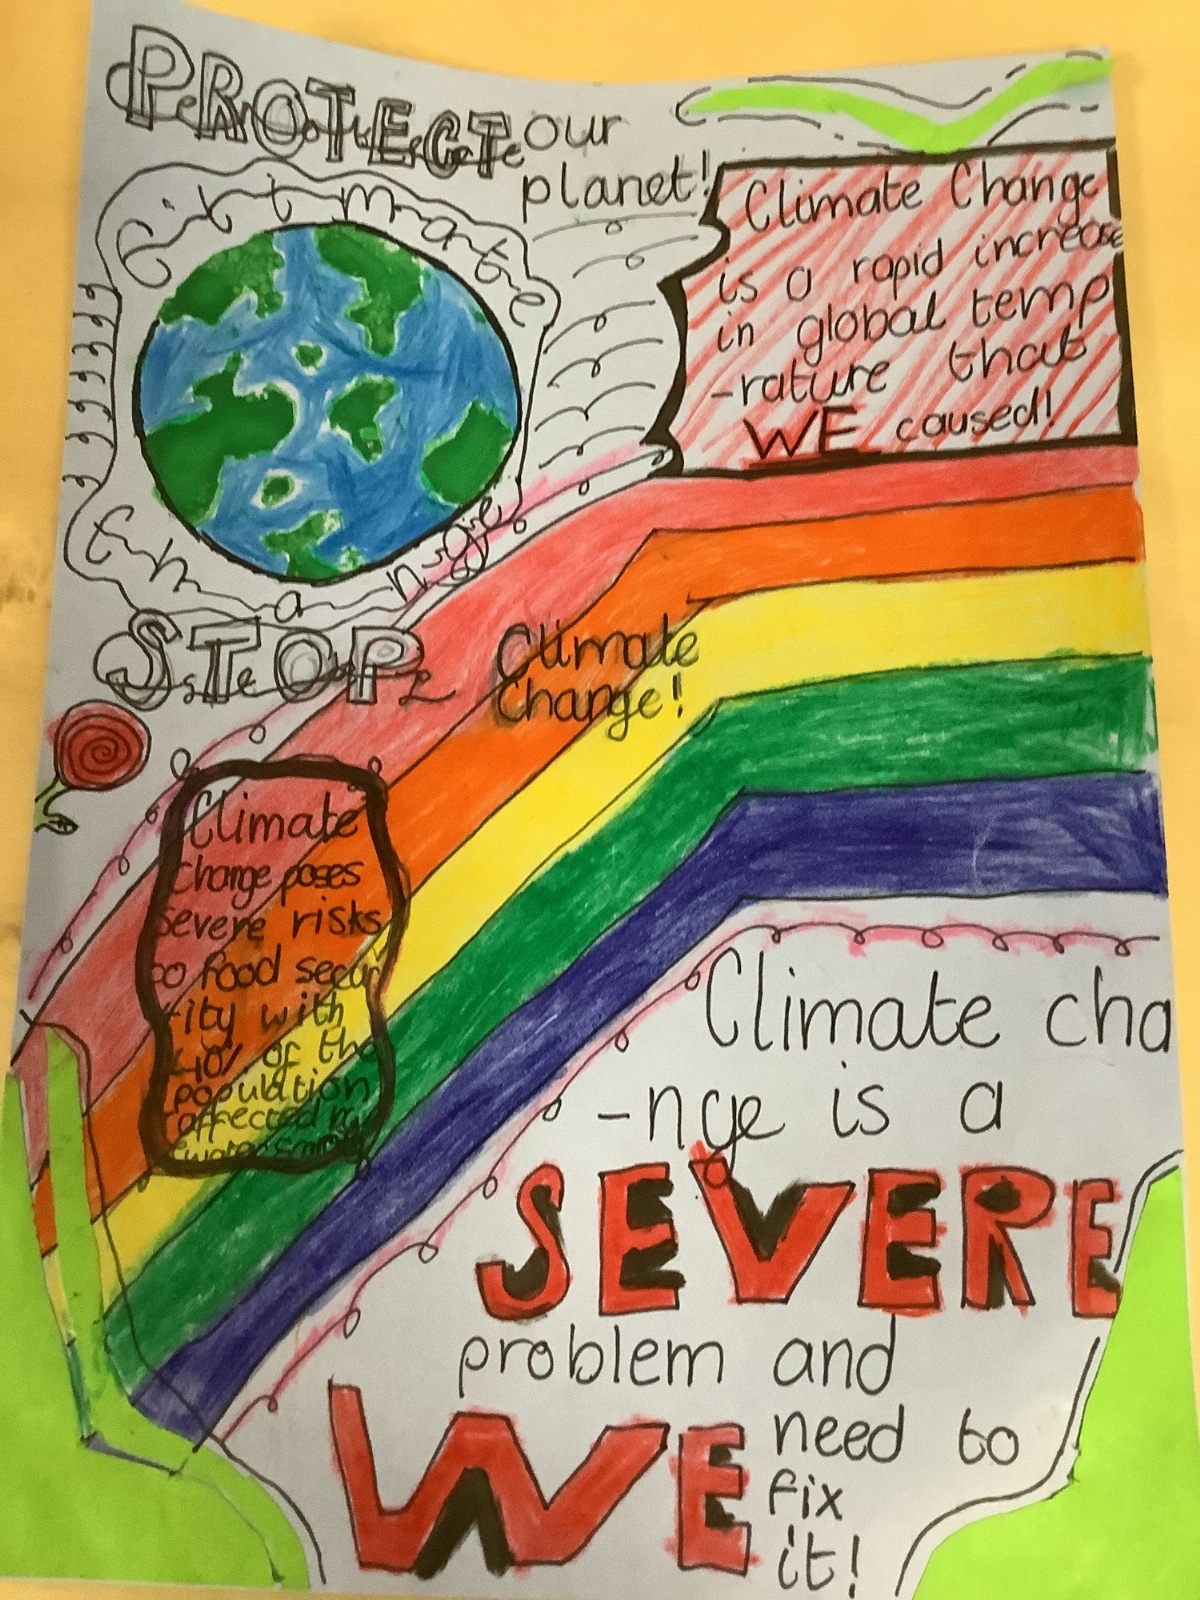 PROTECT our
planet!
Climate
Change
Climate Change
is a rapid increase
in global temp
-rature that
WE caused!
STOP Climate
Change!
Climate
change poses
severe risks
to food secur
-ity with
40% of the
population
affected by
Climate cha
-nge is a
SEVERE
problem and
WE need to
fix
it!